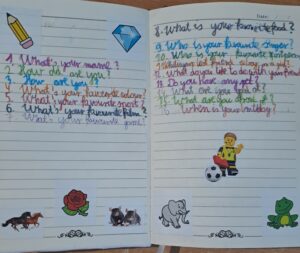 1. What's your name?
2. How old are you?
3. How are you?
4. What's your favourite colour?
5. What's your favourite sport?
6. What's your favourite film?
7. What's your favourite game?
8. What is your favourite food?
9. Who is your favourite singer?
10. Who is your favourite
11. best friend a
12. What do you like to do with your
13. Do you have any pet
14. What are you good at?
15. What are you afraid of?
16. When is your birthday?